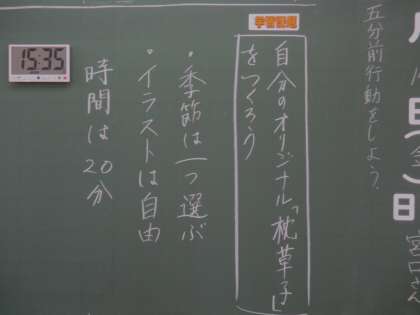 五分前行動をしよう。
学習課題
自分のオリジナル「枕草子」
をつくろう
・季節は一つ選ぶ
・イラストは自由
時間は20分
15:35